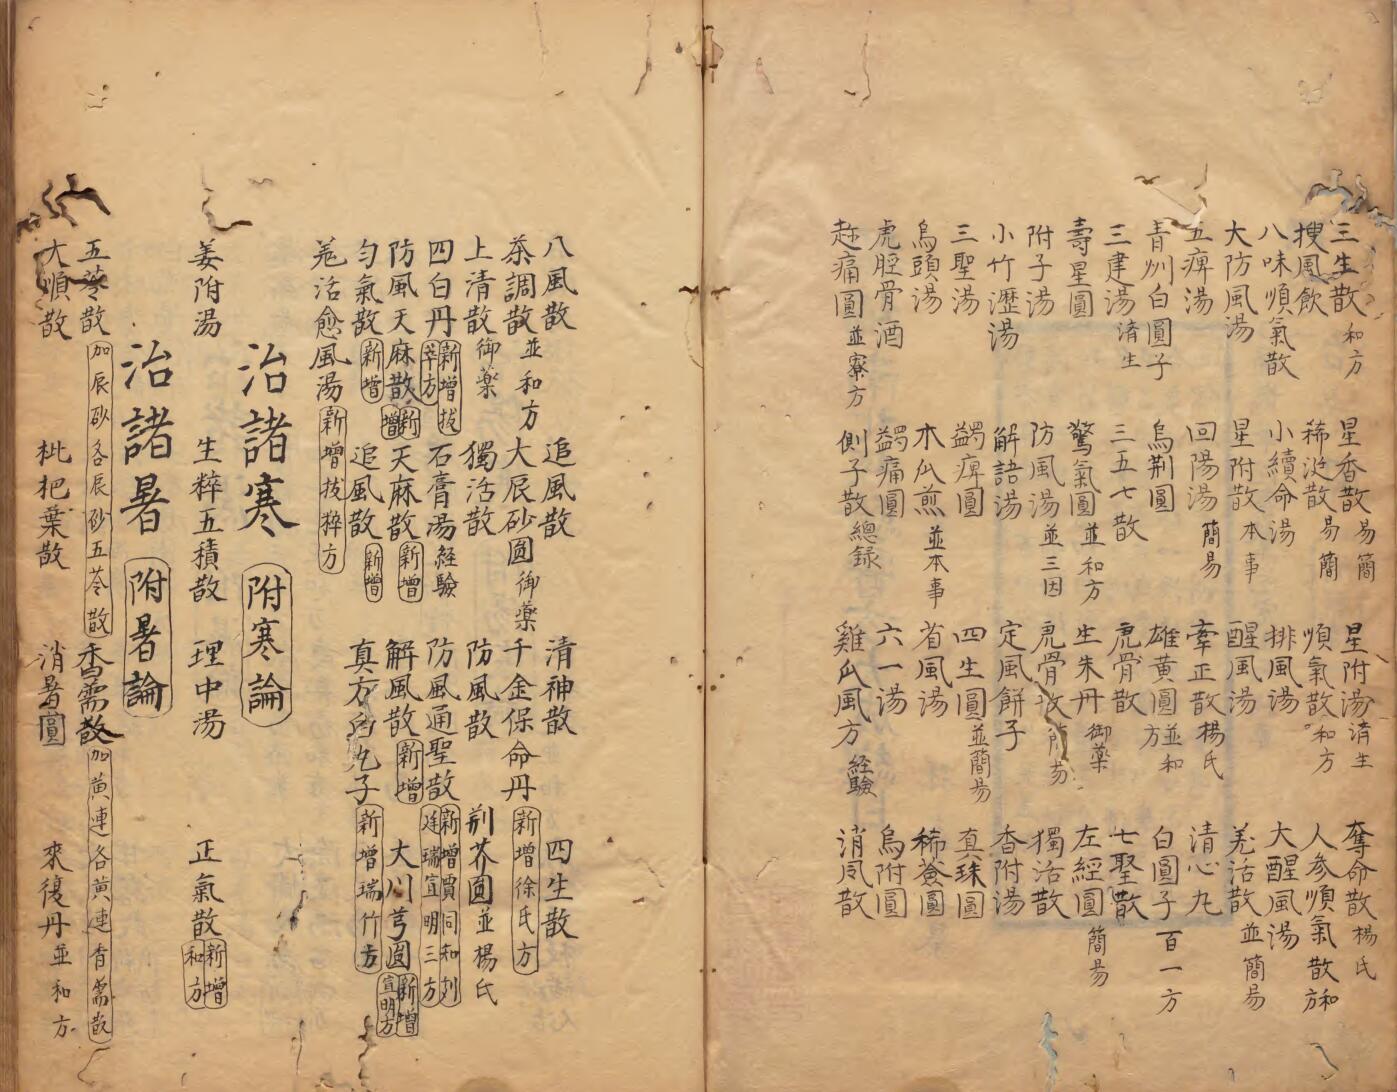 三生散 和方 星香散 易簡 星附湯 済生 奪命散 楊氏
搜風飲 稀涎散 易簡 順氣散 和方 人参順氣散 和方
八味順氣散 小續命湯 排風湯 大醒風湯
大防風湯 星附散 本事 醒風湯 羌活散 並簡易
五痺湯 回陽湯 簡易 牽正散 楊氏 清心丸
青州白圓子 烏荆圓 雄黃圓 並和方 白圓子 百一方
三建湯 済生 三五七散 虎骨散 七聖散
壽星圓 驚氣圓 並和方 生朱丹 御藥 左經圓 簡易
附子湯 防風湯 並三因 虎骨散 簡易 獨活散
小竹瀝湯 解語湯 定風餅子 香附湯
三聖湯 蠲痺圓 四生圓 並簡易 真珠圓
烏頭湯 木瓜煎 並本事 省風湯 稀薟圓
虎脛骨酒 蠲痛圓 六一湯 烏附圓
趂痛圓 並寮方 側子散 總録 雞瓜風方 経驗 消风散
八風散 追風散 清神散 四生散
茶調散 並和方 大辰砂圓 御藥 千金保命丹 新增徐氏方
上清散 御藥 獨活散 防風散 荆芥圓 並楊氏
四白丹 新增拔萃方 石膏湯 经驗 防風通聖散 新增賈同知刘廷瑞宣明三方
防風天麻散 新增 天麻散 新增 解風散 新增 大川芎圓 新增宣明方
匀氣散 新增 追風散 新增 真方白丸子 新增瑞竹方
羗活愈風湯 新增拔粹方
治諸寒 附寒論
姜附湯 生粹五積散 理中湯 正氣散 新增和方
治諸暑 附暑論
五苓散 加辰砂各辰砂五苓散 香薷散 加黄連各黄連香薷散
大順散 枇杷葉散 消暑圓 來復丹 並和方